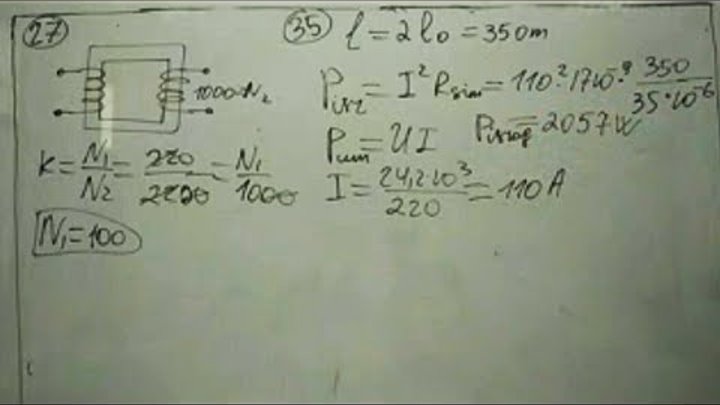 27
1000=N₂
K = N₁/N₂ = 220/2200 = N₁/1000
N₁=100
35 l = 2l₀ = 350m
= I² R = 110² · 17·10⁻⁹ · 350/35·10⁻⁶
= 2057 W
= UI
I = 24,2·10³/220 = 110 A